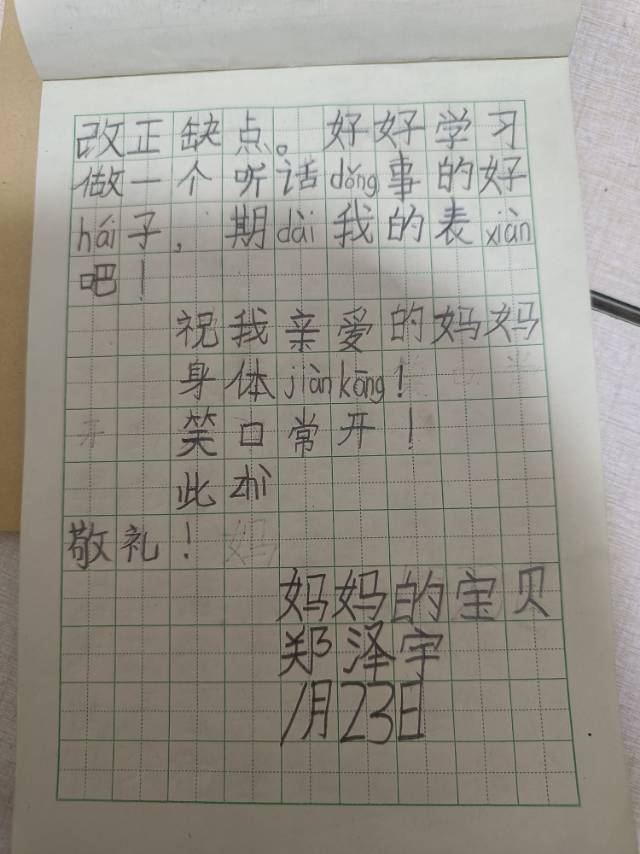 改正缺点。好好学习
做一个听话dǒng事的好
hái子，期dài我的表xiàn
吧！
祝我亲爱的妈妈
身体jiànkāng！
笑口常开！
此zhì
敬礼！
妈妈的宝贝
郑泽宇
1月23日